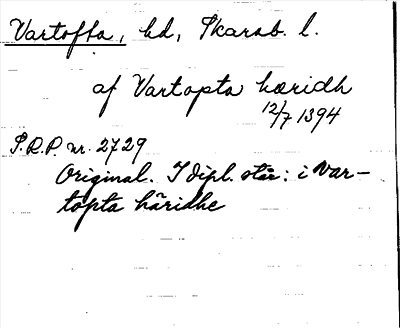 Vartofta, hd, Skarab. l.
af Vartopta hæridh
12/7 1394
S.R.P. nr. 2729
Original. I dipl. står: i Var-
topta häridhe